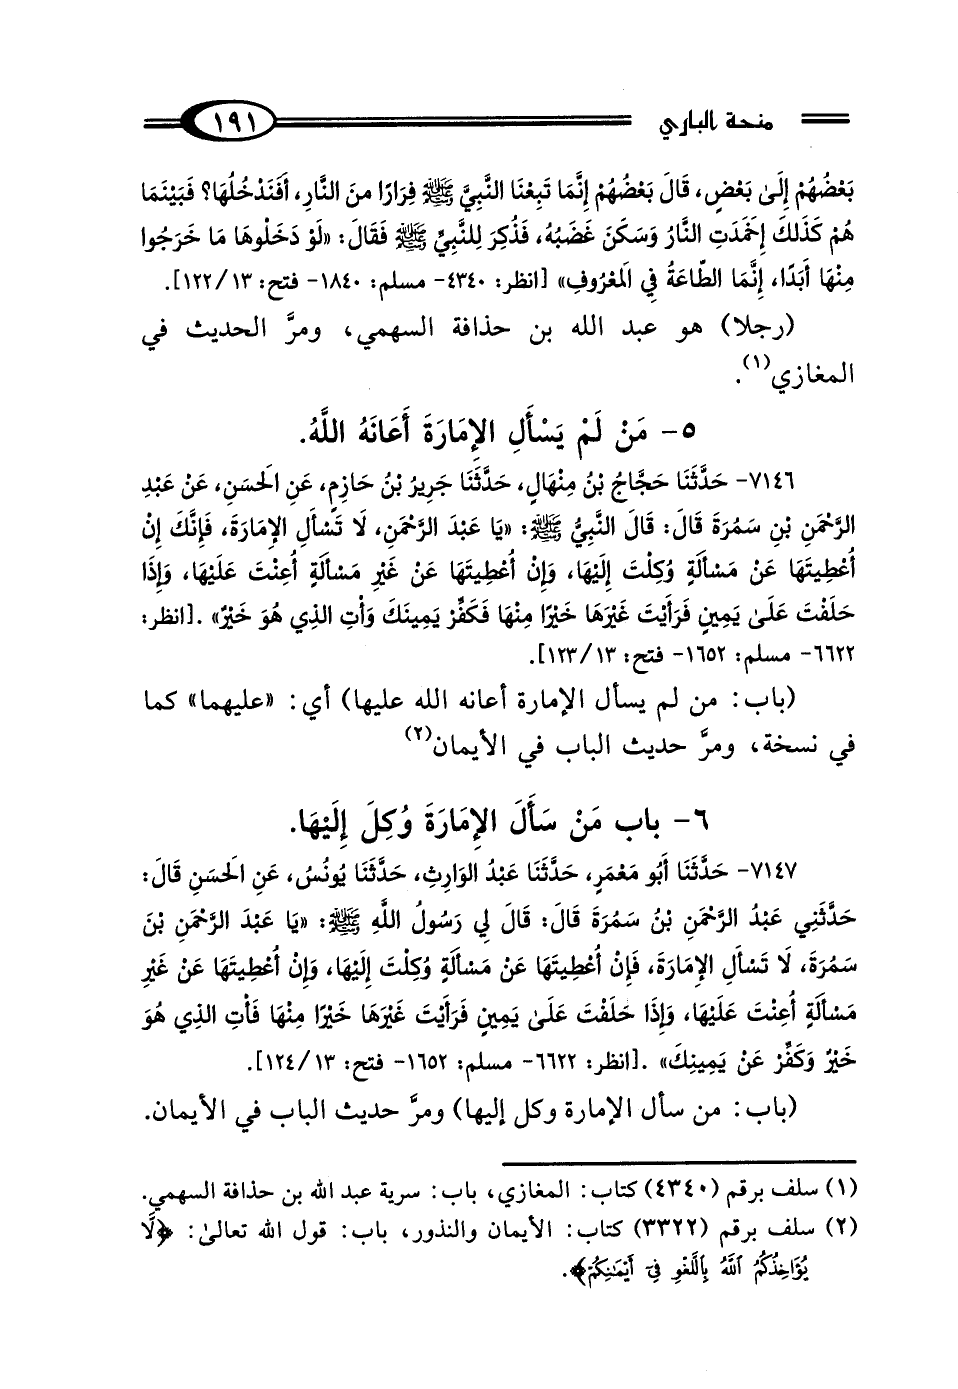 منحة الباري ١٩١
بَعْضُهُمْ إِلَىٰ بَعْضٍ، قَالَ بَعْضُهُمْ إِنَّمَا تَبِعْنَا النَّبِيَّ ﷺ فِرَارًا مِنَ النَّارِ، أَفَنَدْخُلُهَا؟ فَبَيْنَمَا
هُمْ كَذَلِكَ إِخْمَدَتِ النَّارُ وَسَكَنَ غَضَبُهُ، فَذُكِرَ لِلنَّبِيِّ ﷺ فَقَالَ: «لَوْ دَخَلُوهَا مَا خَرَجُوا
مِنْهَا أَبَدًا، إِنَّمَا الطَّاعَةُ فِي المَعْرُوفِ» [انظر: ٤٣٤٠- مسلم: ١٨٤٠- فتح: ١٣/ ١٢٢].
(رجلا) هو عبد الله بن حذافة السهمي، ومرَّ الحديث في
المغازي(١).
٥- مَنْ لَمْ يَسْأَلِ الإِمَارَةَ أَعَانَهُ اللَّهُ.
٧١٤٦- حَدَّثَنَا حَجَّاجُ بْنُ مِنْهَالٍ، حَدَّثَنَا جَرِيرُ بْنُ حَازِمٍ، عَنِ الَحسَنِ، عَنْ عَبْدِ
الرَّحْمَنِ بْنِ سَمُرَةَ قَالَ: قَالَ النَّبِيُّ ﷺ: «يَا عَبْدَ الرَّحْمَنِ، لَا تَسْأَلِ الإِمَارَةَ، فَإِنَّكَ إِنْ
أُعْطِيتَهَا عَنْ مَسْأَلَةٍ وُكِلْتَ إِلَيْهَا، وَإِنْ أُعْطِيتَهَا عَنْ غَيْرِ مَسْأَلَةٍ أُعِنْتَ عَلَيْهَا، وَإِذَا
حَلَفْتَ عَلَىٰ يَمِينٍ فَرَأَيْتَ غَيْرَهَا خَيْرًا مِنْهَا فَكَفِّرْ يَمِينَكَ وَأْتِ الذِي هُوَ خَيْرٌ» .[انظر:
٦٦٢٢- مسلم: ١٦٥٢- فتح: ١٣/ ١٢٣].
(باب: من لم يسأل الإمارة أعانه الله عليها) أي: «عليهما» كما
في نسخة، ومرَّ حديث الباب في الأيمان(٢)
٦- باب مَنْ سَأَلَ الإِمَارَةَ وُكِلَ إِلَيْهَا.
٧١٤٧- حَدَّثَنَا أَبُو مَعْمَرٍ، حَدَّثَنَا عَبْدُ الوَارِثِ، حَدَّثَنَا يُونُسُ، عَنِ الَحسَنِ قَالَ:
حَدَّثَنِي عَبْدُ الرَّحْمَنِ بْنُ سَمُرَةَ قَالَ: قَالَ لِي رَسُولُ اللَّهِ ﷺ: «يَا عَبْدَ الرَّحْمَنِ بْنَ
سَمُرَةَ، لَا تَسْأَلِ الإِمَارَةَ، فَإِنْ أُعْطِيتَهَا عَنْ مَسْأَلَةٍ وُكِلْتَ إِلَيْهَا، وَإِنْ أُعْطِيتَهَا عَنْ غَيْرِ
مَسْأَلَةٍ أُعِنْتَ عَلَيْهَا، وَإِذَا حَلَفْتَ عَلَىٰ يَمِينٍ فَرَأَيْتَ غَيْرَهَا خَيْرًا مِنْهَا فَأْتِ الذِي هُوَ
خَيْرٌ وَكَفِّرْ عَنْ يَمِينِكَ» .[انظر: ٦٦٢٢- مسلم: ١٦٥٢- فتح: ١٣/ ١٢٤].
(باب: من سأل الإمارة وكل إليها) ومرَّ حديث الباب في الأيمان.
(١) سلف برقم (٤٣٤٠) كتاب: المغازي، باب: سرية عبد الله بن حذافة السهمي.
(٢) سلف برقم (٣٣٢٢) كتاب: الأيمان والنذور، باب: قول الله تعالىٰ: ﴿لَّا
يُؤَاخِذُكُمُ ٱللَّهُ بِٱللَّغْوِ فِىٓ أَيْمَٰنِكُمْ﴾.